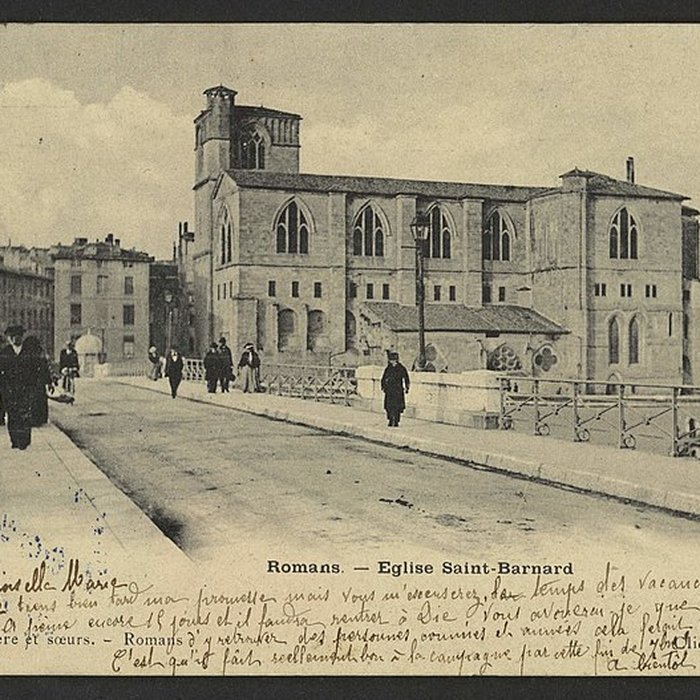 Romans. — Eglise Saint-Barnard
Marie
tiens bien tard ma promesse mais vous m'excuserez, le temps des vacanc
A peine encore 15 jours et il faudra rentrer à Die! Vous avouerez je que
ère et sœurs. — Romans d'y retrouver des personnes connues et aimées cela ferait Clic
C'est qu'il fait réellement bon à la campagne par cette fin de 7bre!
à bientôt